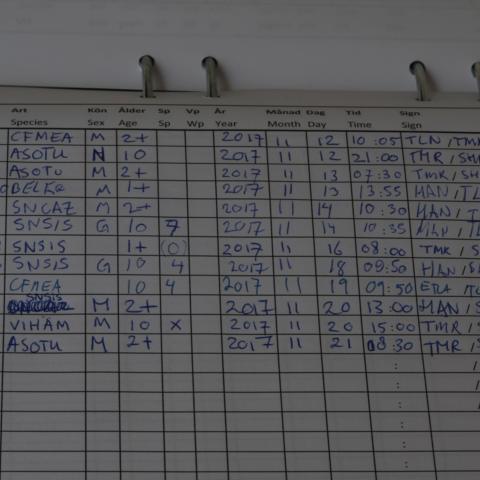 Art Kön Ålder Sp Vp År Månad Dag Tid Sign
Species Sex Age Sp Wp Year Month Day Time Sign
CFMEA M 2+ 2017 11 12 10:05 TLN/TMR
ASOTU N 10 2017 11 12 21:00 TMR/SH
ASOTU M 2+ 2017 11 13 07:30 TMR/SH
M 1+ 2017 11 13 13:55 HAN/TL
SNCAZ M 2+ 2017 11 14 10:30 HAN/T
SNSIS G 10 7 2017 11 14 10:35 HAN/TL
SNSIS 1+ (0) 2017 11 16 08:00 TMR/S
SNSIS G 10 4 2017 11 18 09:50 HAN/SH
CFMEA 10 4 2017 11 19 09:50
SNSIS M 2+ 2017 11 20 13:00 HAN/S
VIHAM M 10 x 2017 11 20 15:00 TMR/S
ASOTU M 2+ 2017 11 21 08:30 TMR/S